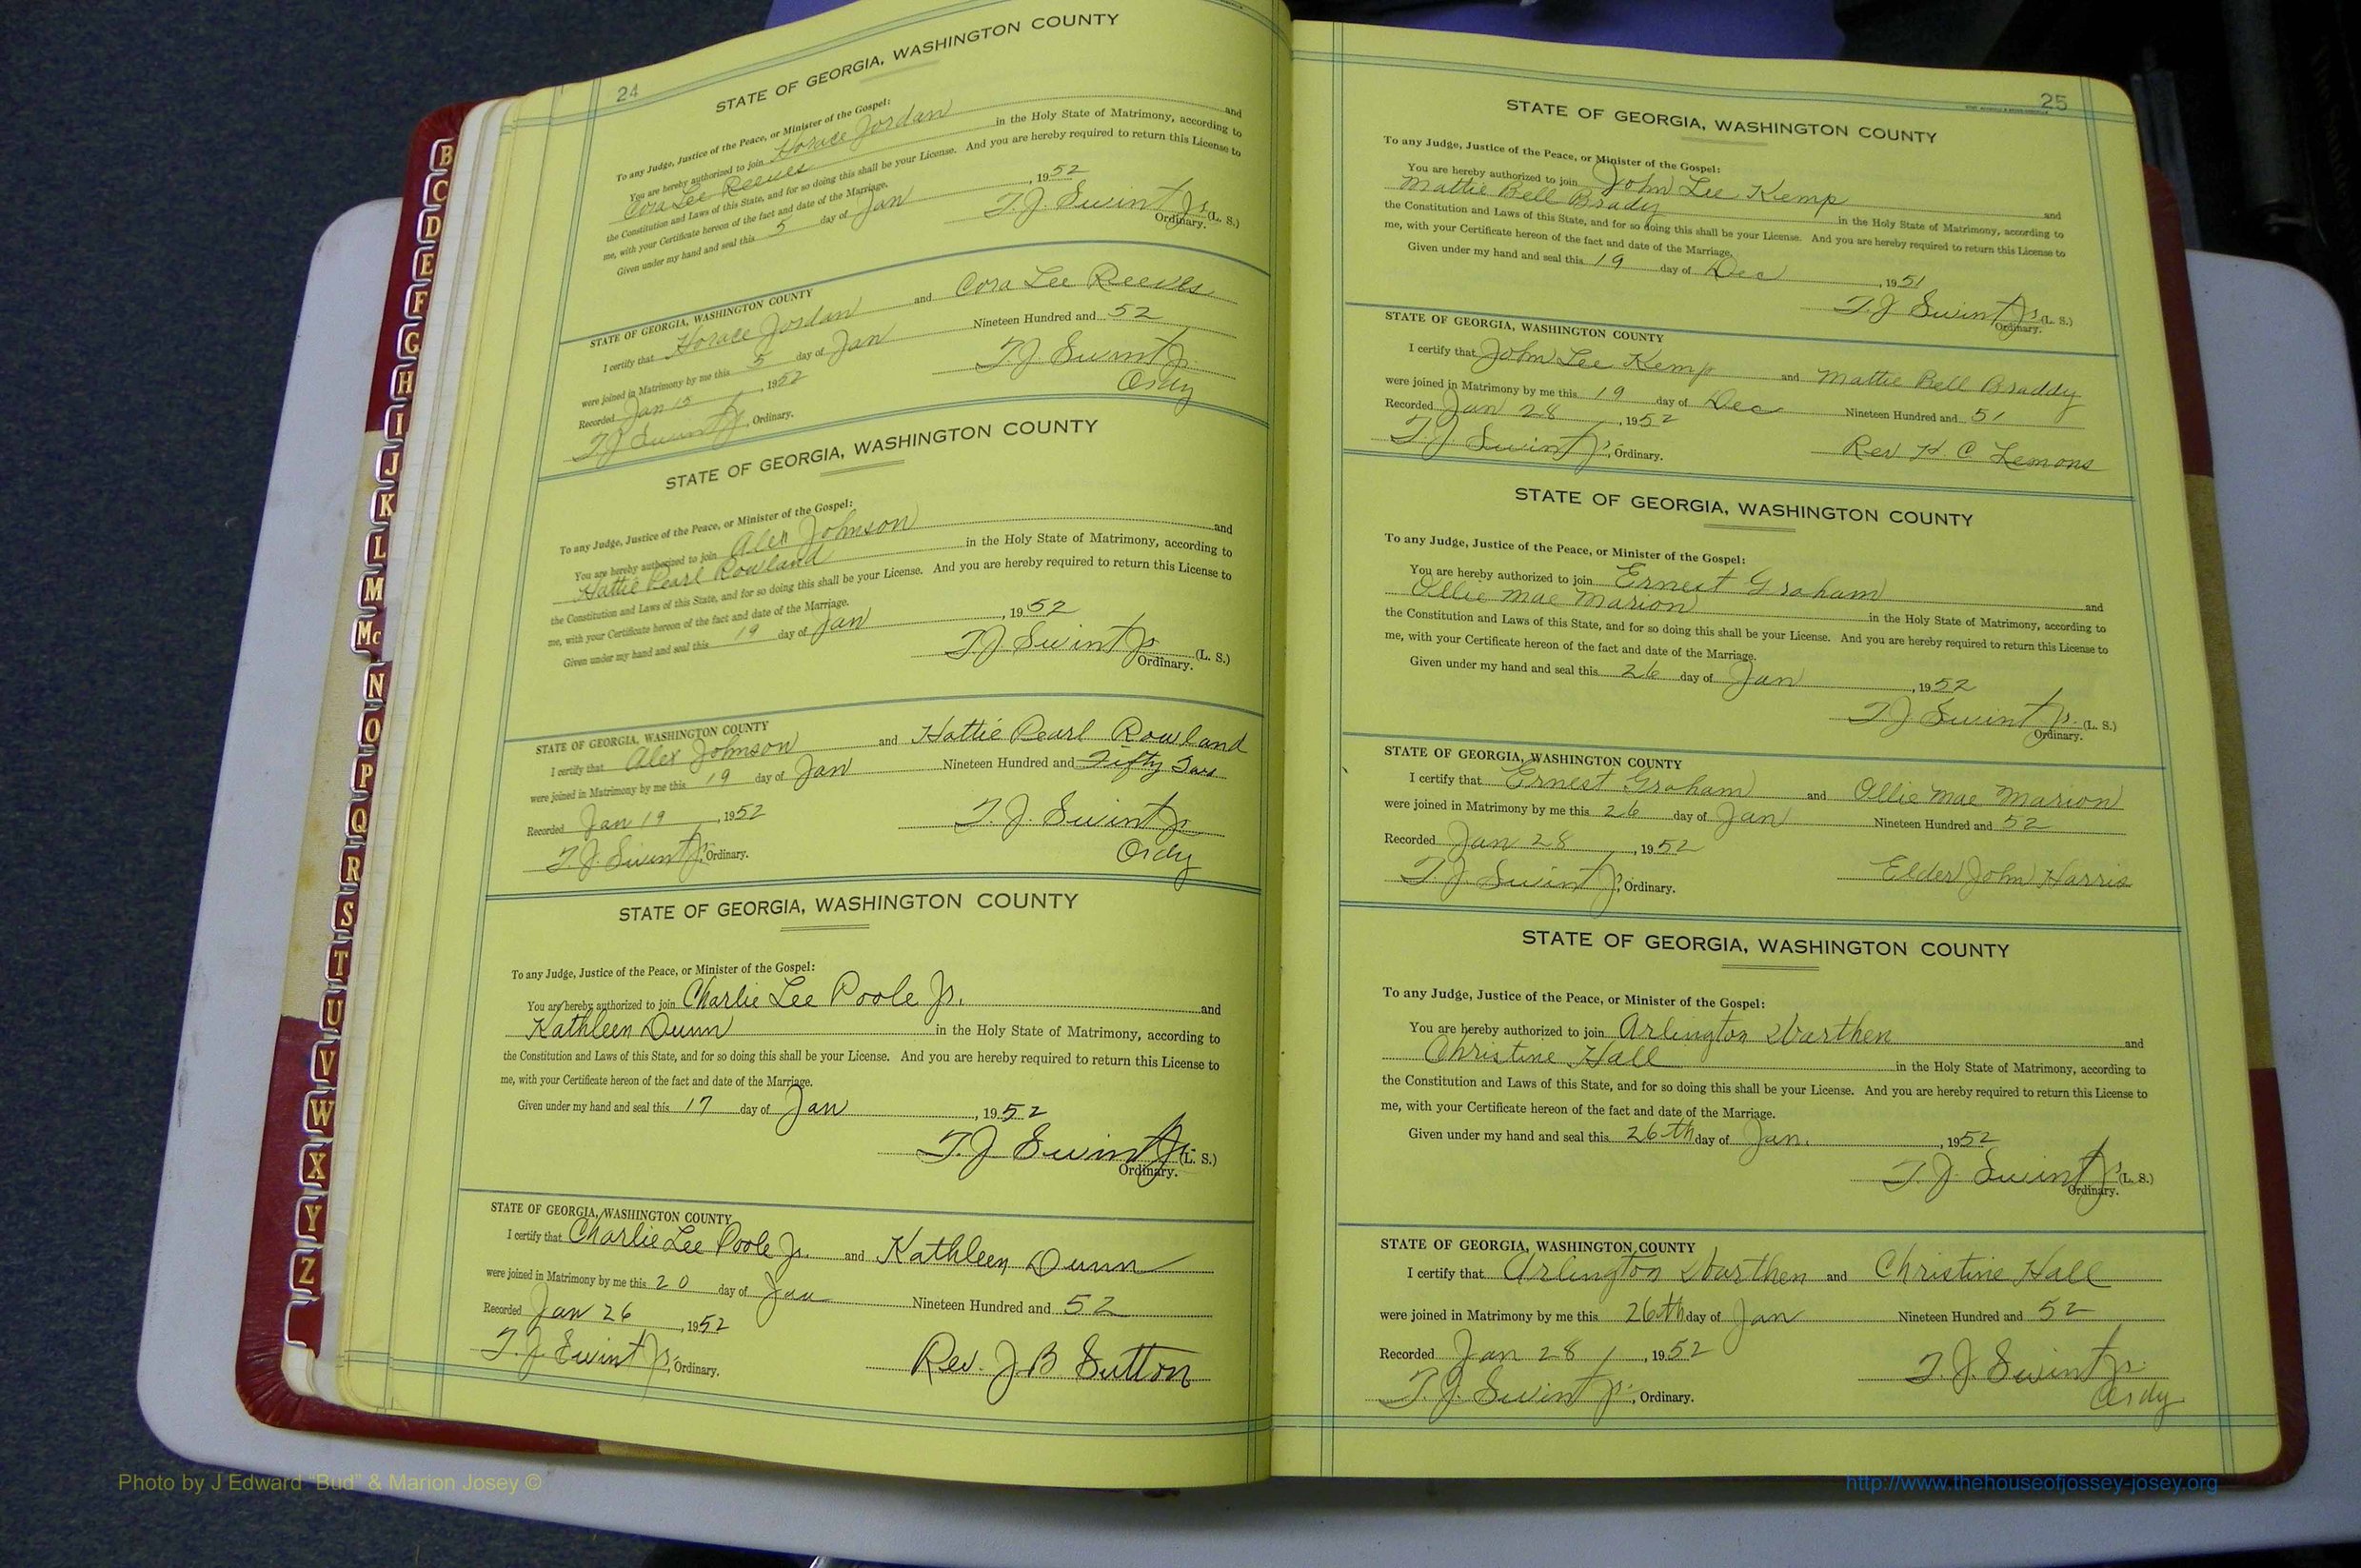 B
C
D
E
F
G
H
I
J
K
L
M
Mc
N
O
P
Q
R
S
T
U
V
W
X
Y
Z
24
STATE OF GEORGIA, WASHINGTON COUNTY
To any Judge, Justice of the Peace, or Minister of the Gospel:
You are hereby authorized to join Horace Jordan and
Cora Lee Reeves in the Holy State of Matrimony, according to
the Constitution and Laws of this State, and for so doing this shall be your License. And you are hereby required to return this License to
me, with your Certificate hereon of the fact and date of the Marriage.
Given under my hand and seal this 5 day of Jan , 1952
T. J. Swint Jr. (L. S.)
Ordinary.
STATE OF GEORGIA, WASHINGTON COUNTY
I certify that Horace Jordan and Cora Lee Reeves
were joined in Matrimony by me this 5 day of Jan Nineteen Hundred and 52
Recorded Jan 15 , 1952 T. J. Swint Jr.
T. J. Swint Jr., Ordinary. Ordy
STATE OF GEORGIA, WASHINGTON COUNTY
To any Judge, Justice of the Peace, or Minister of the Gospel:
You are hereby authorized to join Alex Johnson and
Hattie Pearl Rowland in the Holy State of Matrimony, according to
the Constitution and Laws of this State, and for so doing this shall be your License. And you are hereby required to return this License to
me, with your Certificate hereon of the fact and date of the Marriage.
Given under my hand and seal this 19 day of Jan , 1952
T J Swint Jr (L. S.)
Ordinary.
STATE OF GEORGIA, WASHINGTON COUNTY
I certify that Alex Johnson and Hattie Pearl Rowland
were joined in Matrimony by me this 19 day of Jan Nineteen Hundred and Fifty Two
Recorded Jan 19 , 1952 T. J. Swint Jr
T. J. Swint Jr., Ordinary. Ordy
STATE OF GEORGIA, WASHINGTON COUNTY
To any Judge, Justice of the Peace, or Minister of the Gospel:
You are hereby authorized to join Charlie Lee Poole Jr. and
Kathleen Dunn in the Holy State of Matrimony, according to
the Constitution and Laws of this State, and for so doing this shall be your License. And you are hereby required to return this License to
me, with your Certificate hereon of the fact and date of the Marriage.
Given under my hand and seal this 17 day of Jan , 1952
T. J Swint Jr. (L. S.)
Ordinary.
STATE OF GEORGIA, WASHINGTON COUNTY
I certify that Charlie Lee Poole Jr. and Kathleen Dunn
were joined in Matrimony by me this 20 day of Jan Nineteen Hundred and 52
Recorded Jan 26 , 1952
T. J. Swint Jr., Ordinary. Rev. J B Sutton
25
STATE OF GEORGIA, WASHINGTON COUNTY
To any Judge, Justice of the Peace, or Minister of the Gospel:
You are hereby authorized to join John Lee Kemp and
Mattie Bell Brady in the Holy State of Matrimony, according to
the Constitution and Laws of this State, and for so doing this shall be your License. And you are hereby required to return this License to
me, with your Certificate hereon of the fact and date of the Marriage.
Given under my hand and seal this 19 day of Dec , 1951
T. J Swint Jr. (L. S.)
Ordinary.
STATE OF GEORGIA, WASHINGTON COUNTY
I certify that John Lee Kemp and Mattie Bell Braddy
were joined in Matrimony by me this 19 day of Dec Nineteen Hundred and 51
Recorded Jan 28 , 1952
T. J Swint Jr., Ordinary. Rev H. C. Lemons
STATE OF GEORGIA, WASHINGTON COUNTY
To any Judge, Justice of the Peace, or Minister of the Gospel:
You are hereby authorized to join Ernest Graham and
Ollie Mae Marion in the Holy State of Matrimony, according to
the Constitution and Laws of this State, and for so doing this shall be your License. And you are hereby required to return this License to
me, with your Certificate hereon of the fact and date of the Marriage.
Given under my hand and seal this 26 day of Jan , 1952
T. J Swint Jr. (L. S.)
Ordinary.
STATE OF GEORGIA, WASHINGTON COUNTY
I certify that Ernest Graham and Ollie Mae Marion
were joined in Matrimony by me this 26 day of Jan Nineteen Hundred and 52
Recorded Jan 28 , 1952
T. J. Swint Jr., Ordinary. Elder John Harris
STATE OF GEORGIA, WASHINGTON COUNTY
To any Judge, Justice of the Peace, or Minister of the Gospel:
You are hereby authorized to join Arlington Warthen and
Christine Hall in the Holy State of Matrimony, according to
the Constitution and Laws of this State, and for so doing this shall be your License. And you are hereby required to return this License to
me, with your Certificate hereon of the fact and date of the Marriage.
Given under my hand and seal this 26th day of Jan. , 1952
T. J. Swint Jr. (L. S.)
Ordinary.
STATE OF GEORGIA, WASHINGTON COUNTY
I certify that Arlington Warthen and Christine Hall
were joined in Matrimony by me this 26th day of Jan Nineteen Hundred and 52
Recorded Jan 28 , 1952 T. J. Swint Jr.
T. J. Swint Jr., Ordinary. Ordy
Photo by J Edward "Bud" & Marion Josey ©
http://www.thehouseofjossey-josey.org